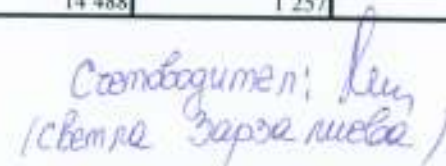 14 488 1 257
Съставодител:
/Светла Зарзалиева/